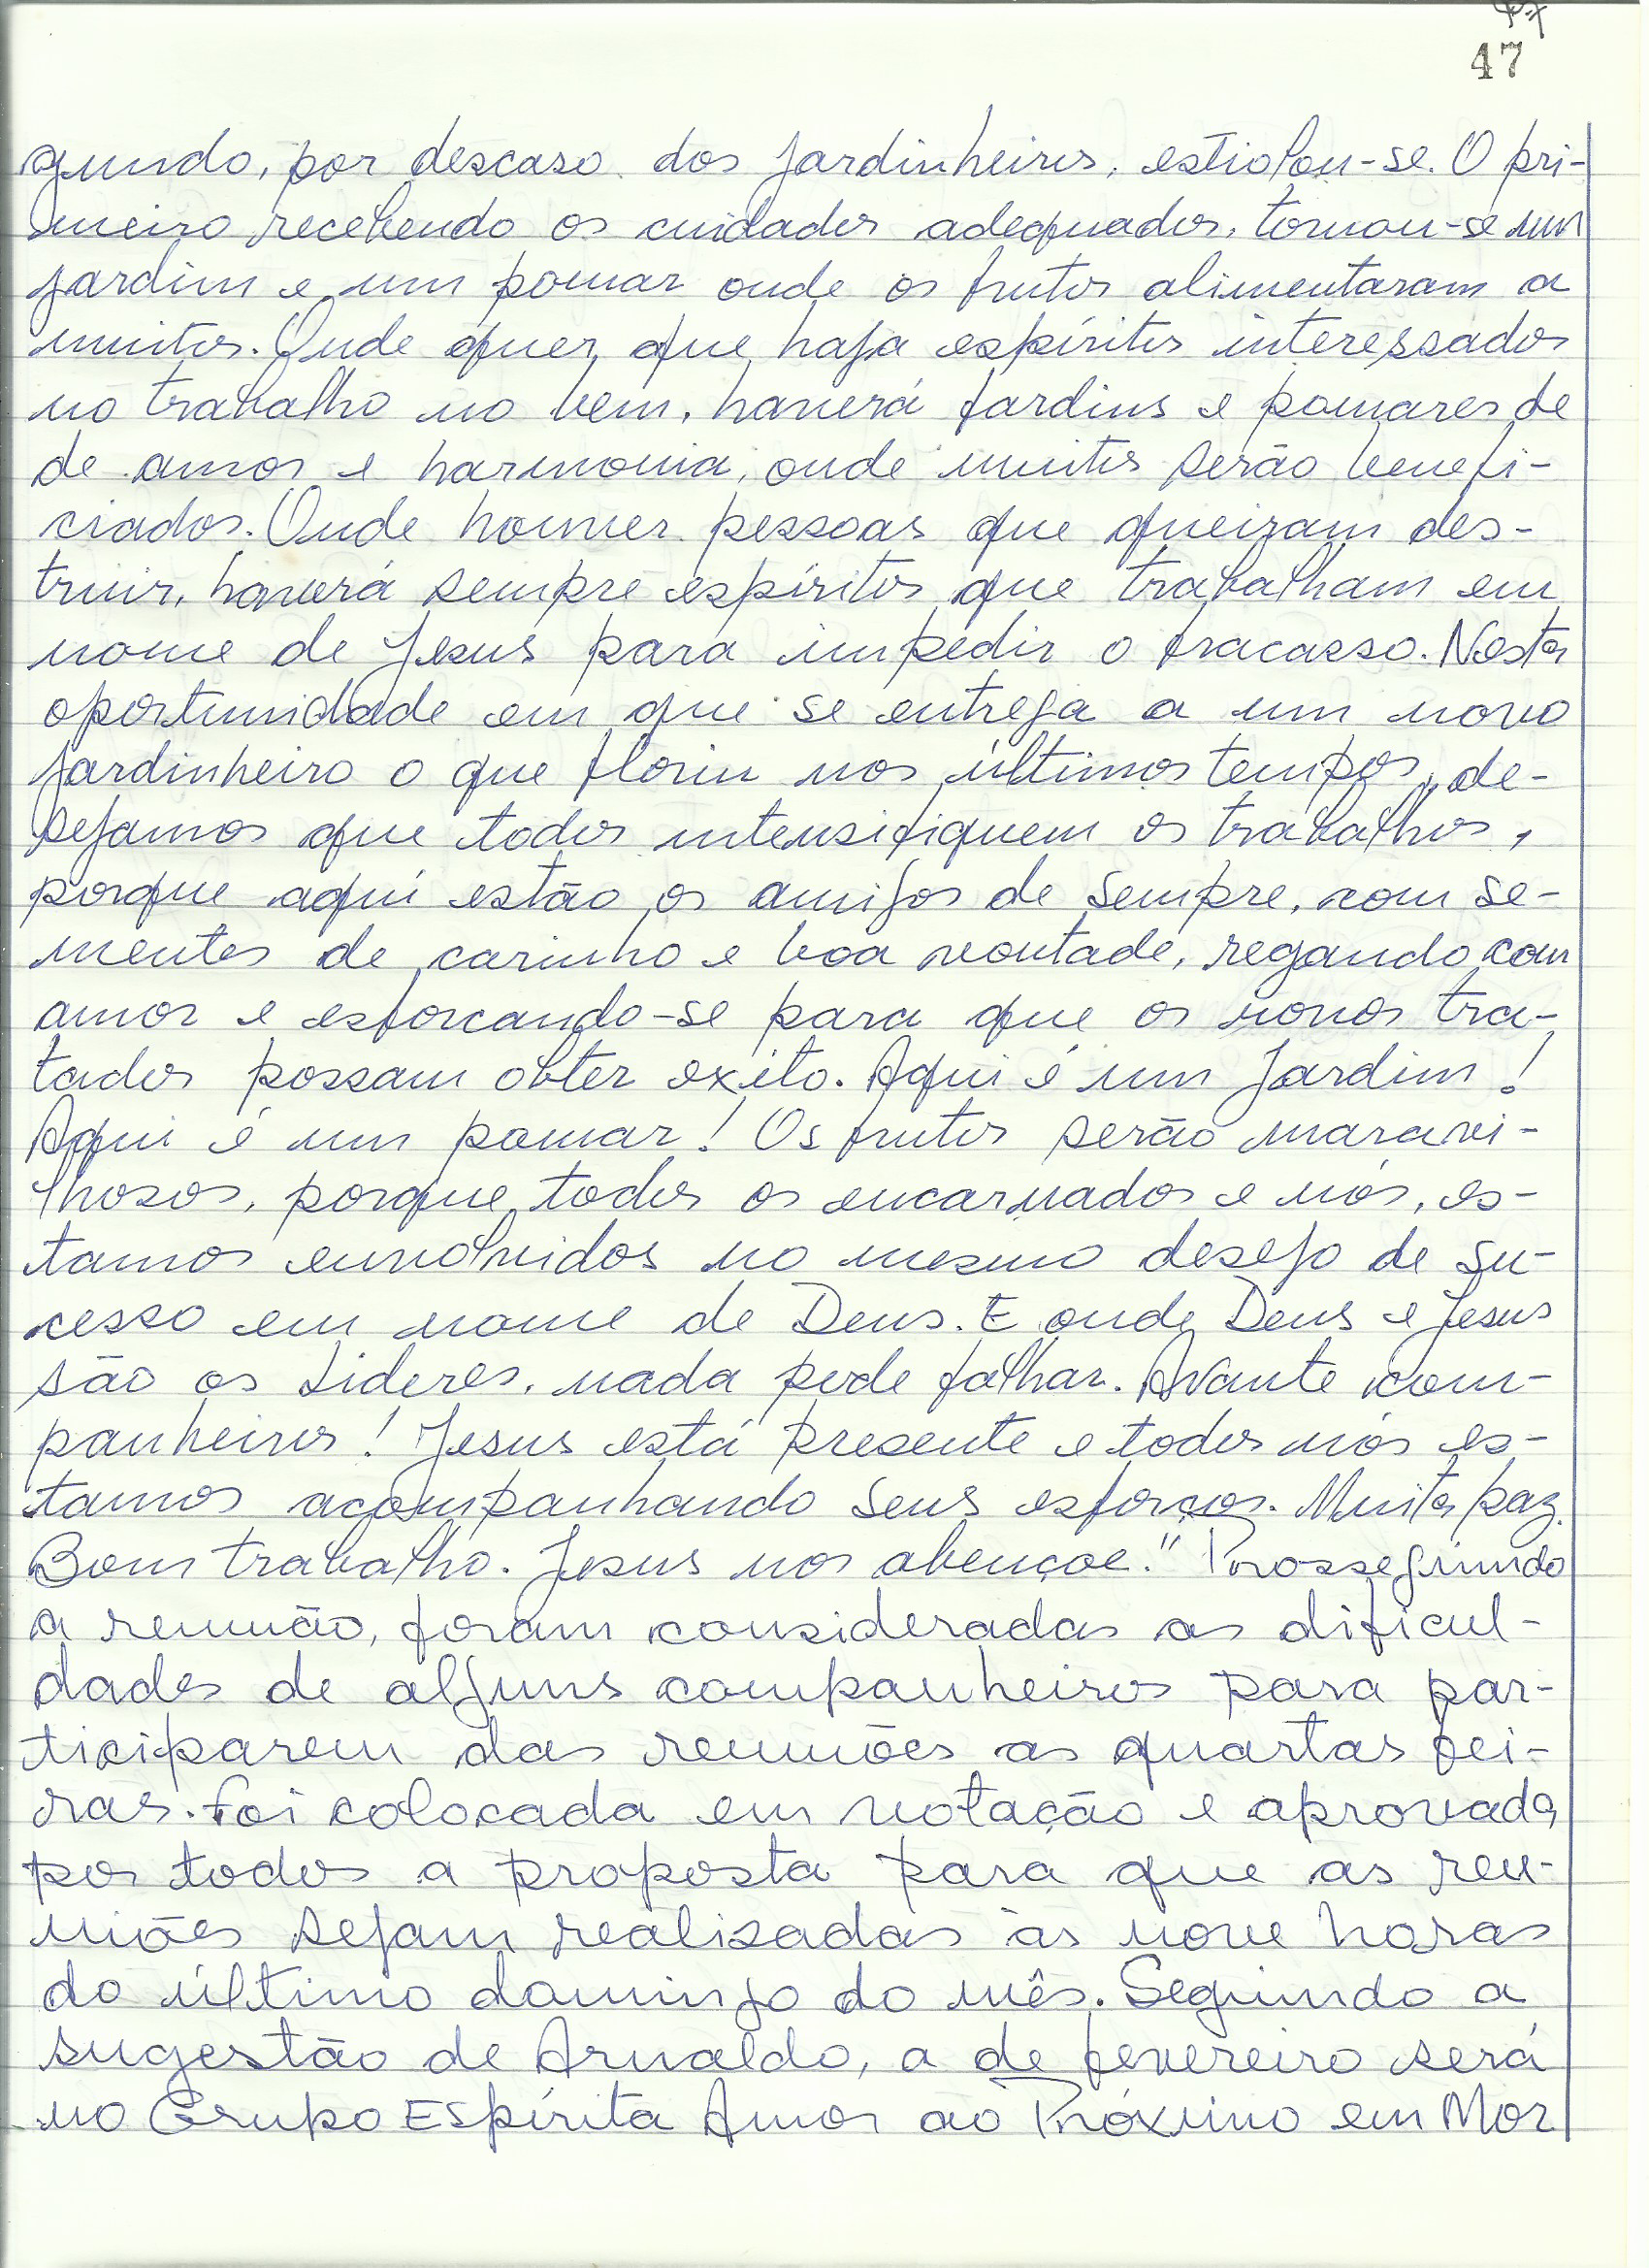 47
gundo, por descaso dos jardinheiros, estiolou-se. O pri-
meiro recebendo os cuidados adequados, tornou-se um
jardim e um pomar onde os frutos alimentaram a
muitos. Onde quer que haja espíritos interessados
no trabalho no bem, haverá jardins e pomares de
de amor e harmonia, onde muitos serão benefi-
ciados. Onde houver pessoas que queiram des-
truir, haverá sempre espíritos que trabalham em
nome de Jesus para impedir o fracasso. Nesta
oportunidade em que se entrega a um novo
jardinheiro o que floriu nos últimos tempos, de-
sejamos que todos intensifiquem os trabalhos,
porque aqui estão os amigos de sempre, com se-
mentes de carinho e boa vontade, regando com
amor e esforcando-se para que os novos tra-
tados possam obter exito. Aqui é um Jardim!
Aqui é um pomar! Os frutos serão maravi-
lhosos, porque todos os encarnados e nós, es-
tamos envolvidos no mesmo desejo de su-
cesso em nome de Deus. E onde Deus e Jesus
são os Lideres, nada pode falhar. Avante com-
panheiros! Jesus está presente e todos nós es-
tamos acompanhando seus esforços. Muita paz.
Bom trabalho. Jesus nos abençoe." Prosseguindo
a reunião, foram consideradas as dificul-
dades de alguns companheiros para par-
ticiparem das reuniões as quartas fei-
ras. Foi colocada em votação e aprovada
por todos a proposta para que as reu-
niões sejam realizadas às nove horas
do último domingo do mês. Seguindo a
sugestão de Arnaldo, a de fevereiro será
no Grupo Espírita Amor ao Próximo em Mor